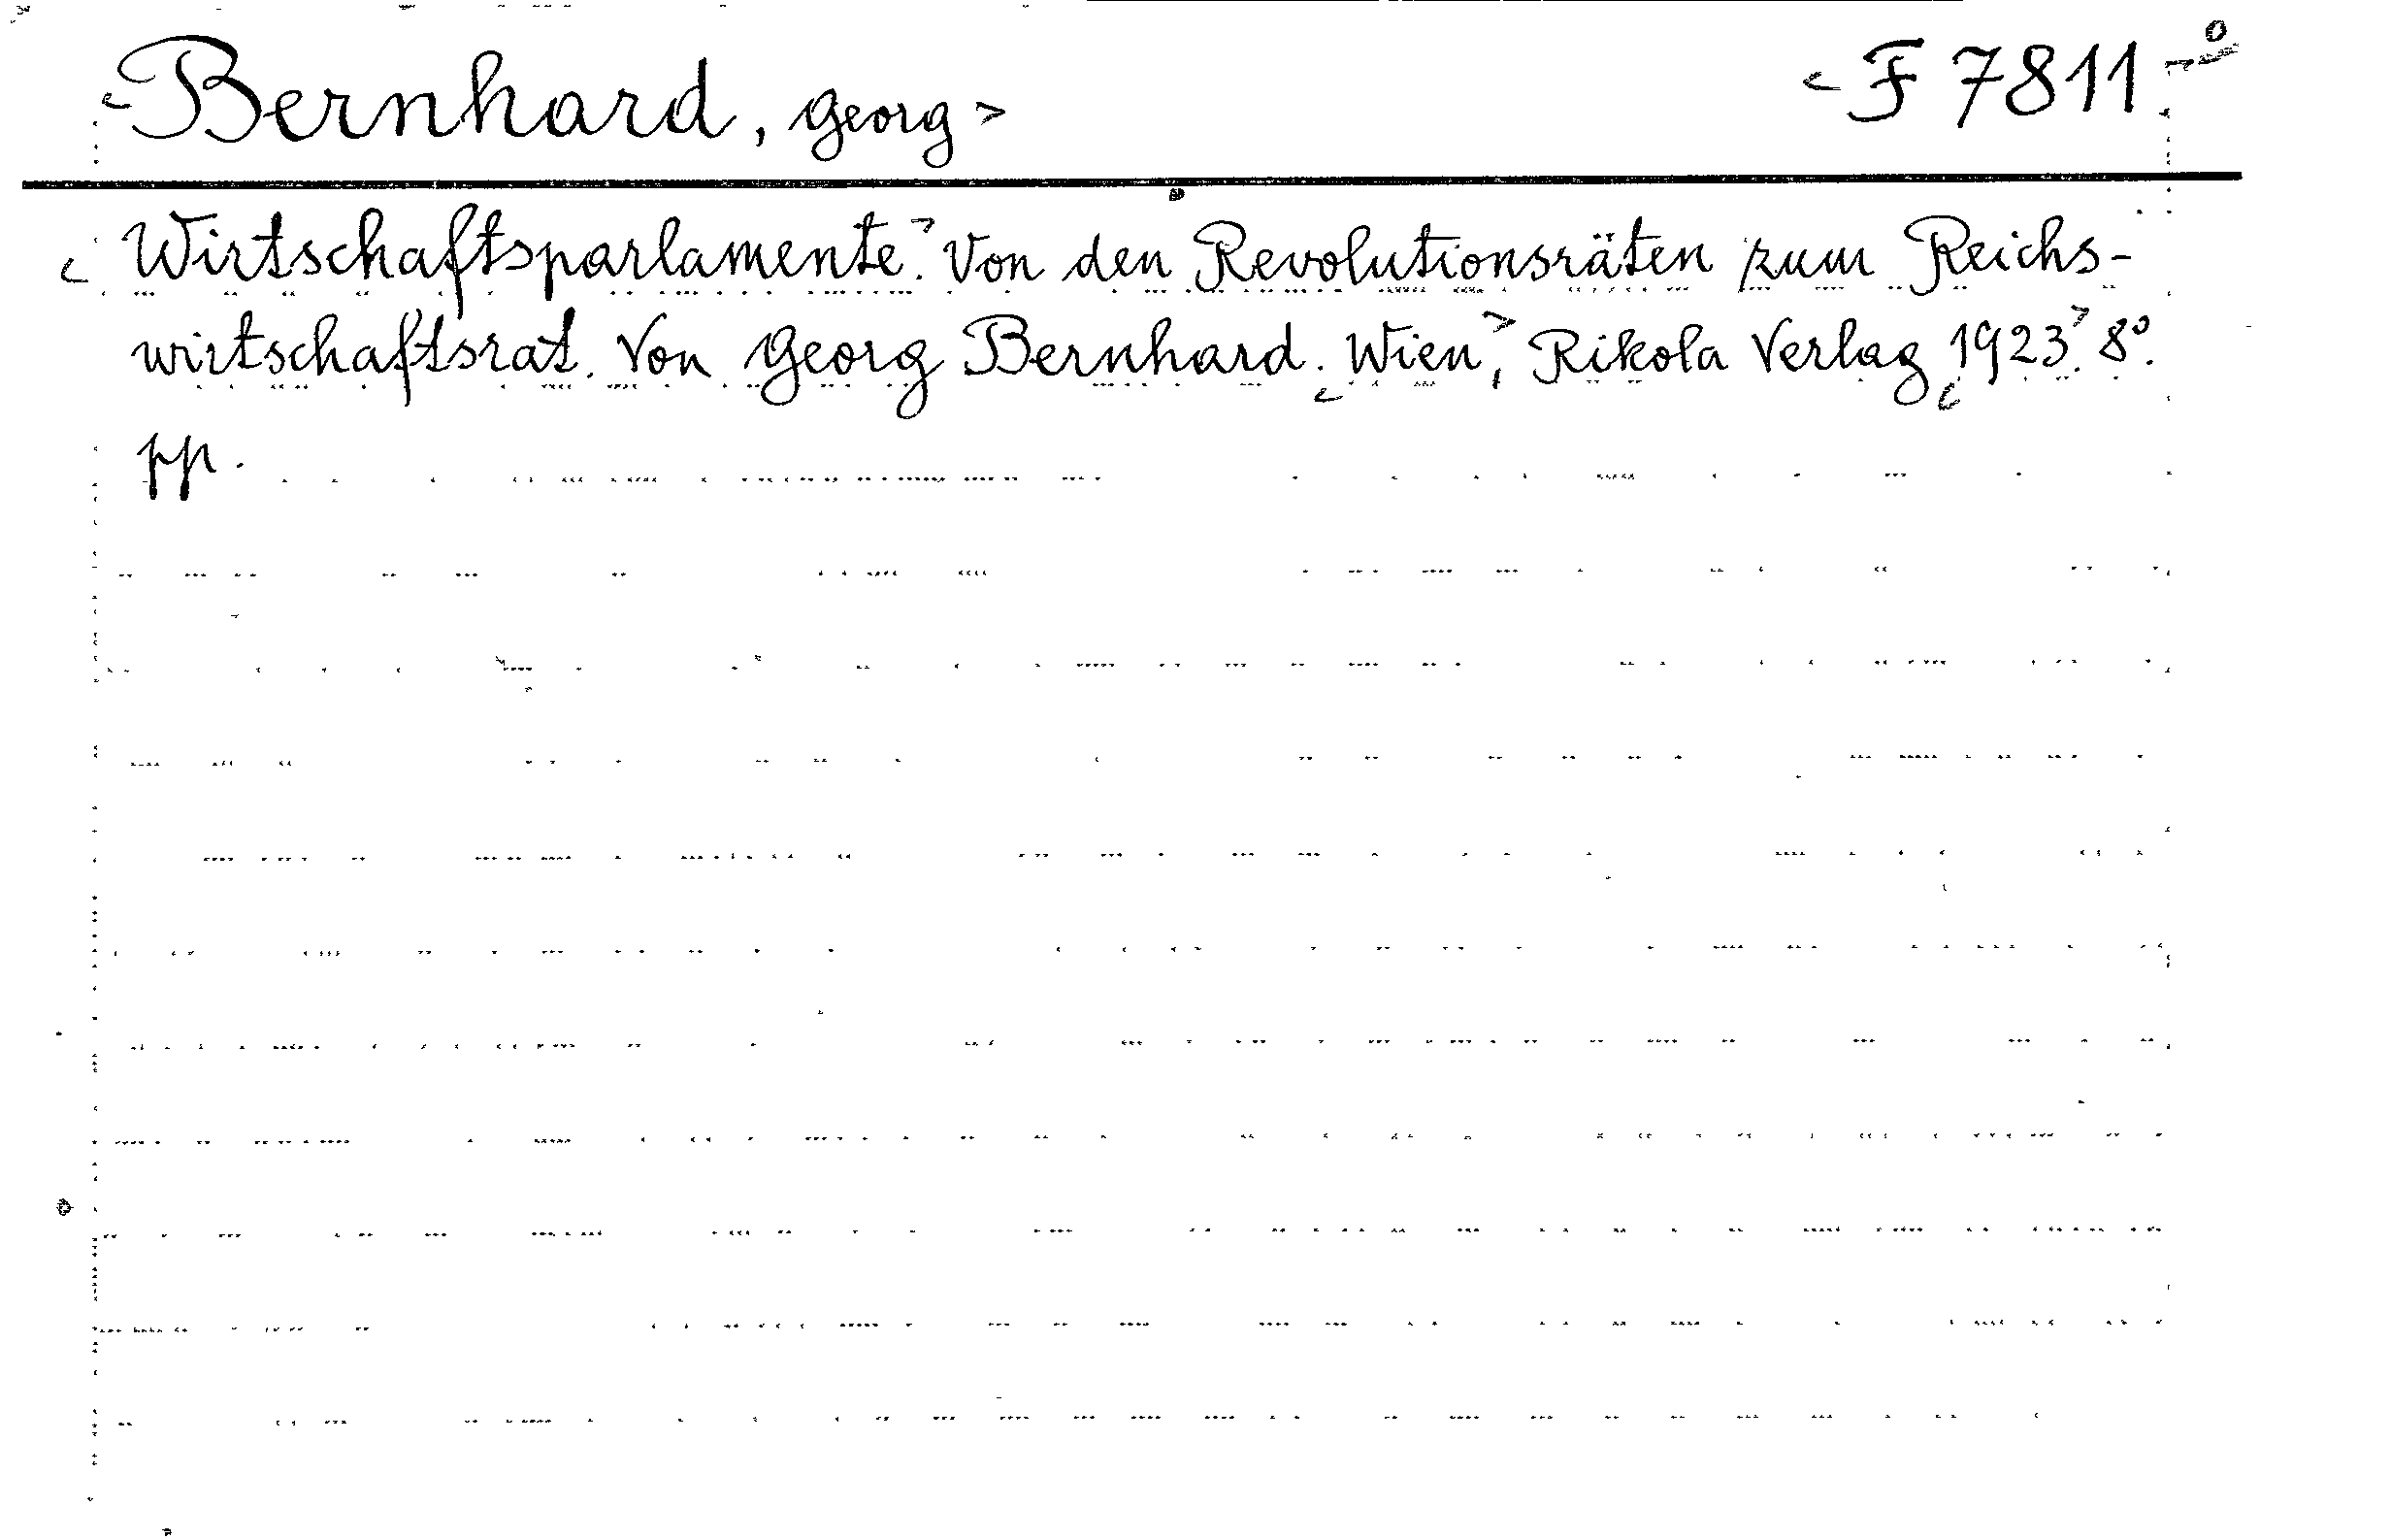 Bernhard, Georg F 7811
Wirtschaftsparlamente. Von den Revolutionsräten zum Reichs-
wirtschaftsrat. Von Georg Bernhard. Wien, Rikola Verlag 1923. 8°.
pp.